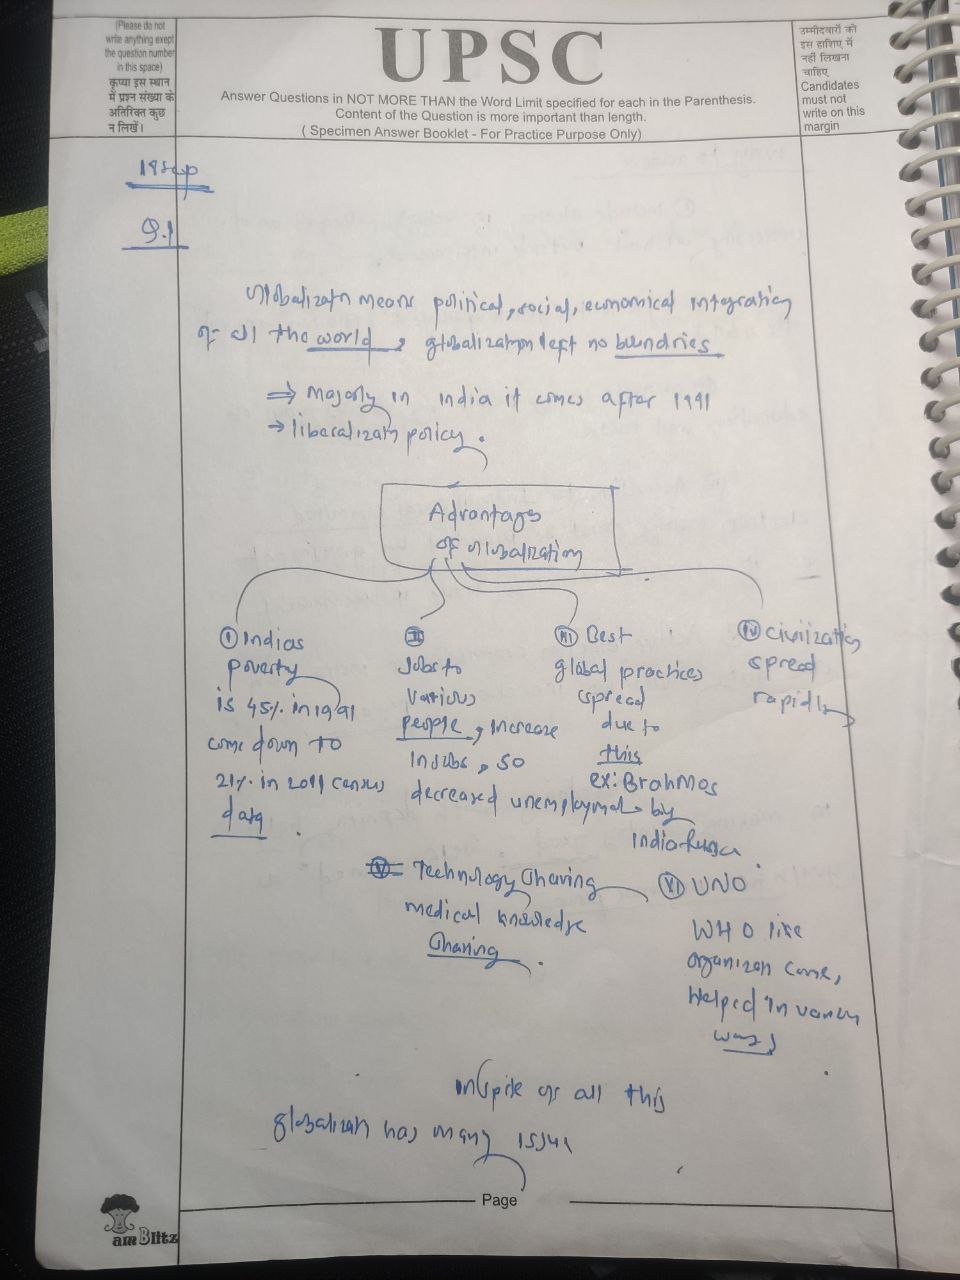 (Please do not
write anything exept
the question number
in this space)
कृप्या इस स्थान
में प्रश्न संख्या के
अतिरिक्त कुछ
न लिखें।
UPSC
Answer Questions in NOT MORE THAN the Word Limit specified for each in the Parenthesis.
Content of the Question is more important than length.
( Specimen Answer Booklet - For Practice Purpose Only)
उम्मीदवारों को
इस हाशिए में
नहीं लिखना
चाहिए
Candidates
must not
write on this
margin
18 sep
Q.1
Globalizatn means political, social, economical integration
of all the world, globalization left no bundries
⇒ majorly in india it comes after 1991
→ liberalizatn policy.
Advantages
of globalization
(I) Indias
poverty
is 45% in 1991
come down to
21% in 2011 census
data.
(II)
Jobs to
various
people, increase
in jobs, so
decreased unemploymet
(III) Best
global practices
spread
due to
this
ex: Brahmos
by
India-Russia.
(IV) civilization
spread
rapidly
(V) Technology sharing
medical knowledge
sharing.
(VI) UNO
WHO like
organizon come,
Helped in various
ways
inspite of all this
globalizatn has many issue
Page
am Blitz